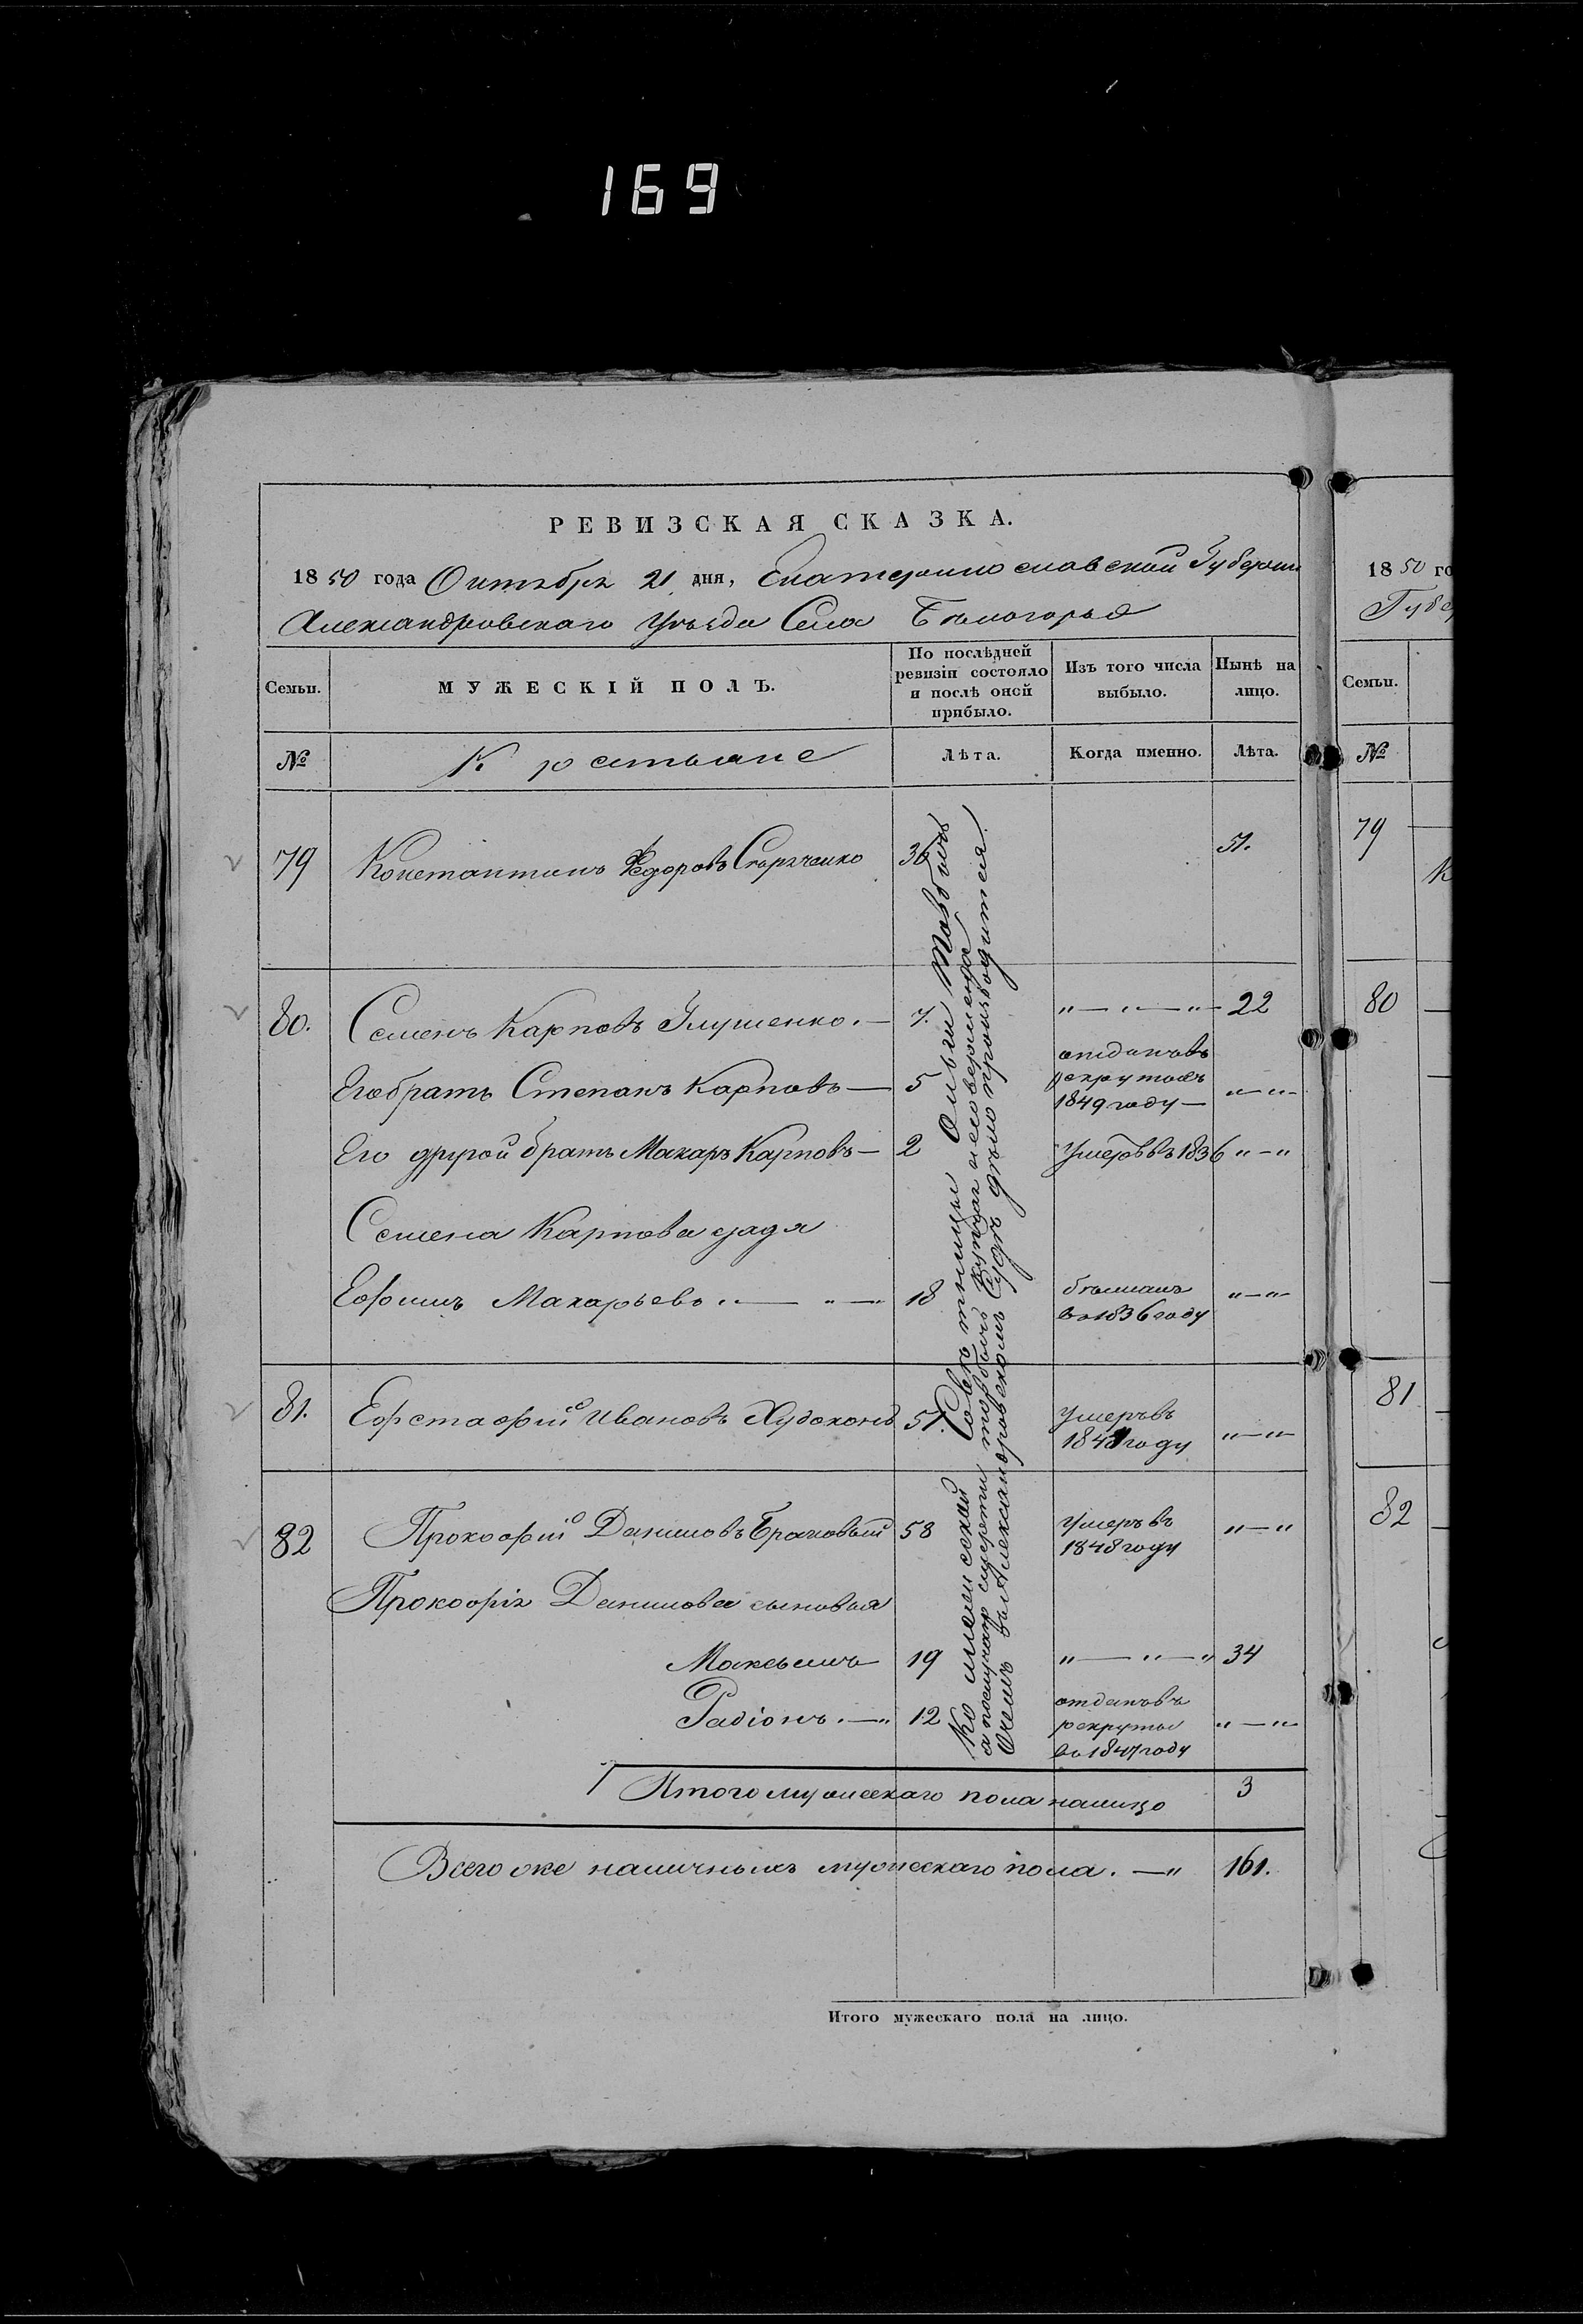 169
РЕВИЗСКАЯ СКАЗКА.
1850 года Октября 21 дня, Екатеринославской Губернии
Александровскаго Уѣзда Села Бѣлогорья
Семьи.
МУЖЕСКІЙ ПОЛЪ.
По послѣдней ревизіи состояло и послѣ оной прибыло.
Изъ того числа выбыло.
Нынѣ на лицо.
№
Крестьяне
Лѣта.
Когда именно.
Лѣта.
79 Константинъ Федоровъ Скрыченко 36 51.
80. Семенъ Карповъ Глушенко.— 7. "—"—"— 22
Его братъ Степанъ Карповъ— 5 отданъ въ рекруты въ 1849 году— "—"—
Его другой братъ Макаръ Карповъ— 2 Умеръ въ 1836 "—"
Семена Карпова дядя
Ефимъ Макарьевъ."— "—" 18 бѣжалъ в 1836 году "—"—
81. Ефстафій Ивановъ Худоконь 51. Умеръ въ 1841 году "—"—
82 Прокофій Даниловъ Браковый 58 Умеръ въ 1848 году "—"
Прокофія Данилова сыновья
Максимъ 19 "—"—" 34
Радіонъ.—" 12 отданъ въ рекруты в 1847 году "—"—
Итого мужескаго пола налицо 3
Всего же наличныхъ мужескаго пола.—" 161.
Итого мужескаго пола на лицо.
Совѣтницы Ольги
а послучаю смерти
о чемъ въ Александровскомъ Судѣ дѣло производится.
1850 го
Губер
Семьи.
№
79
К
80
81
82